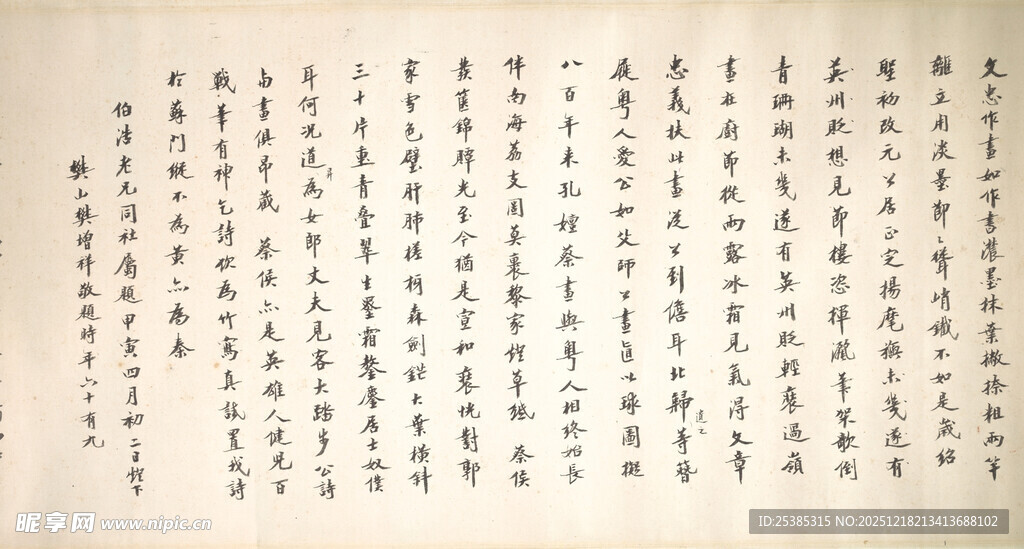 文忠作畫如作書濃墨抹葉撇捺粗兩竿
離立用淡墨節〻聳峭鐵不如是歲紹
聖初改元公居正定揚麾撫未幾遂有
英州貶想見節樓恣揮灑筆架歌倒
青珊瑚未幾遂有英州貶輕裘過嶺
畫在廚節從雨露冰霜見氣得文章
忠義扶此畫從公到儋耳北歸等簪
道之
屐粵人愛公如父師公畫真以球圖擬
八百年来孔嬗蔡畫與粵人相終始長
伴南海荔支圖莫裹黎家煙草紙 蔡侯
發篋錦贉光至今猶是宣和裝恍對郭
家雪色壁肝肺槎枒森劍鋩大葉橫斜
三十片重青疊翠生鋻霜鏊鏖居士奴僕
耳何況道昇為女郎丈夫見客大踏步公詩
与畫俱昂藏 蔡侯亦是英雄人健兒百
戰筆有神乞詩欲為竹寫真試置我詩
於蘇門縱不為黃亦為秦
伯浩老兄同社屬題甲寅四月初二日燈下
樊山樊增祥敬題時年六十有九
昵享网 www.nipic.cn
ID:25385315 NO:20251218213413688102